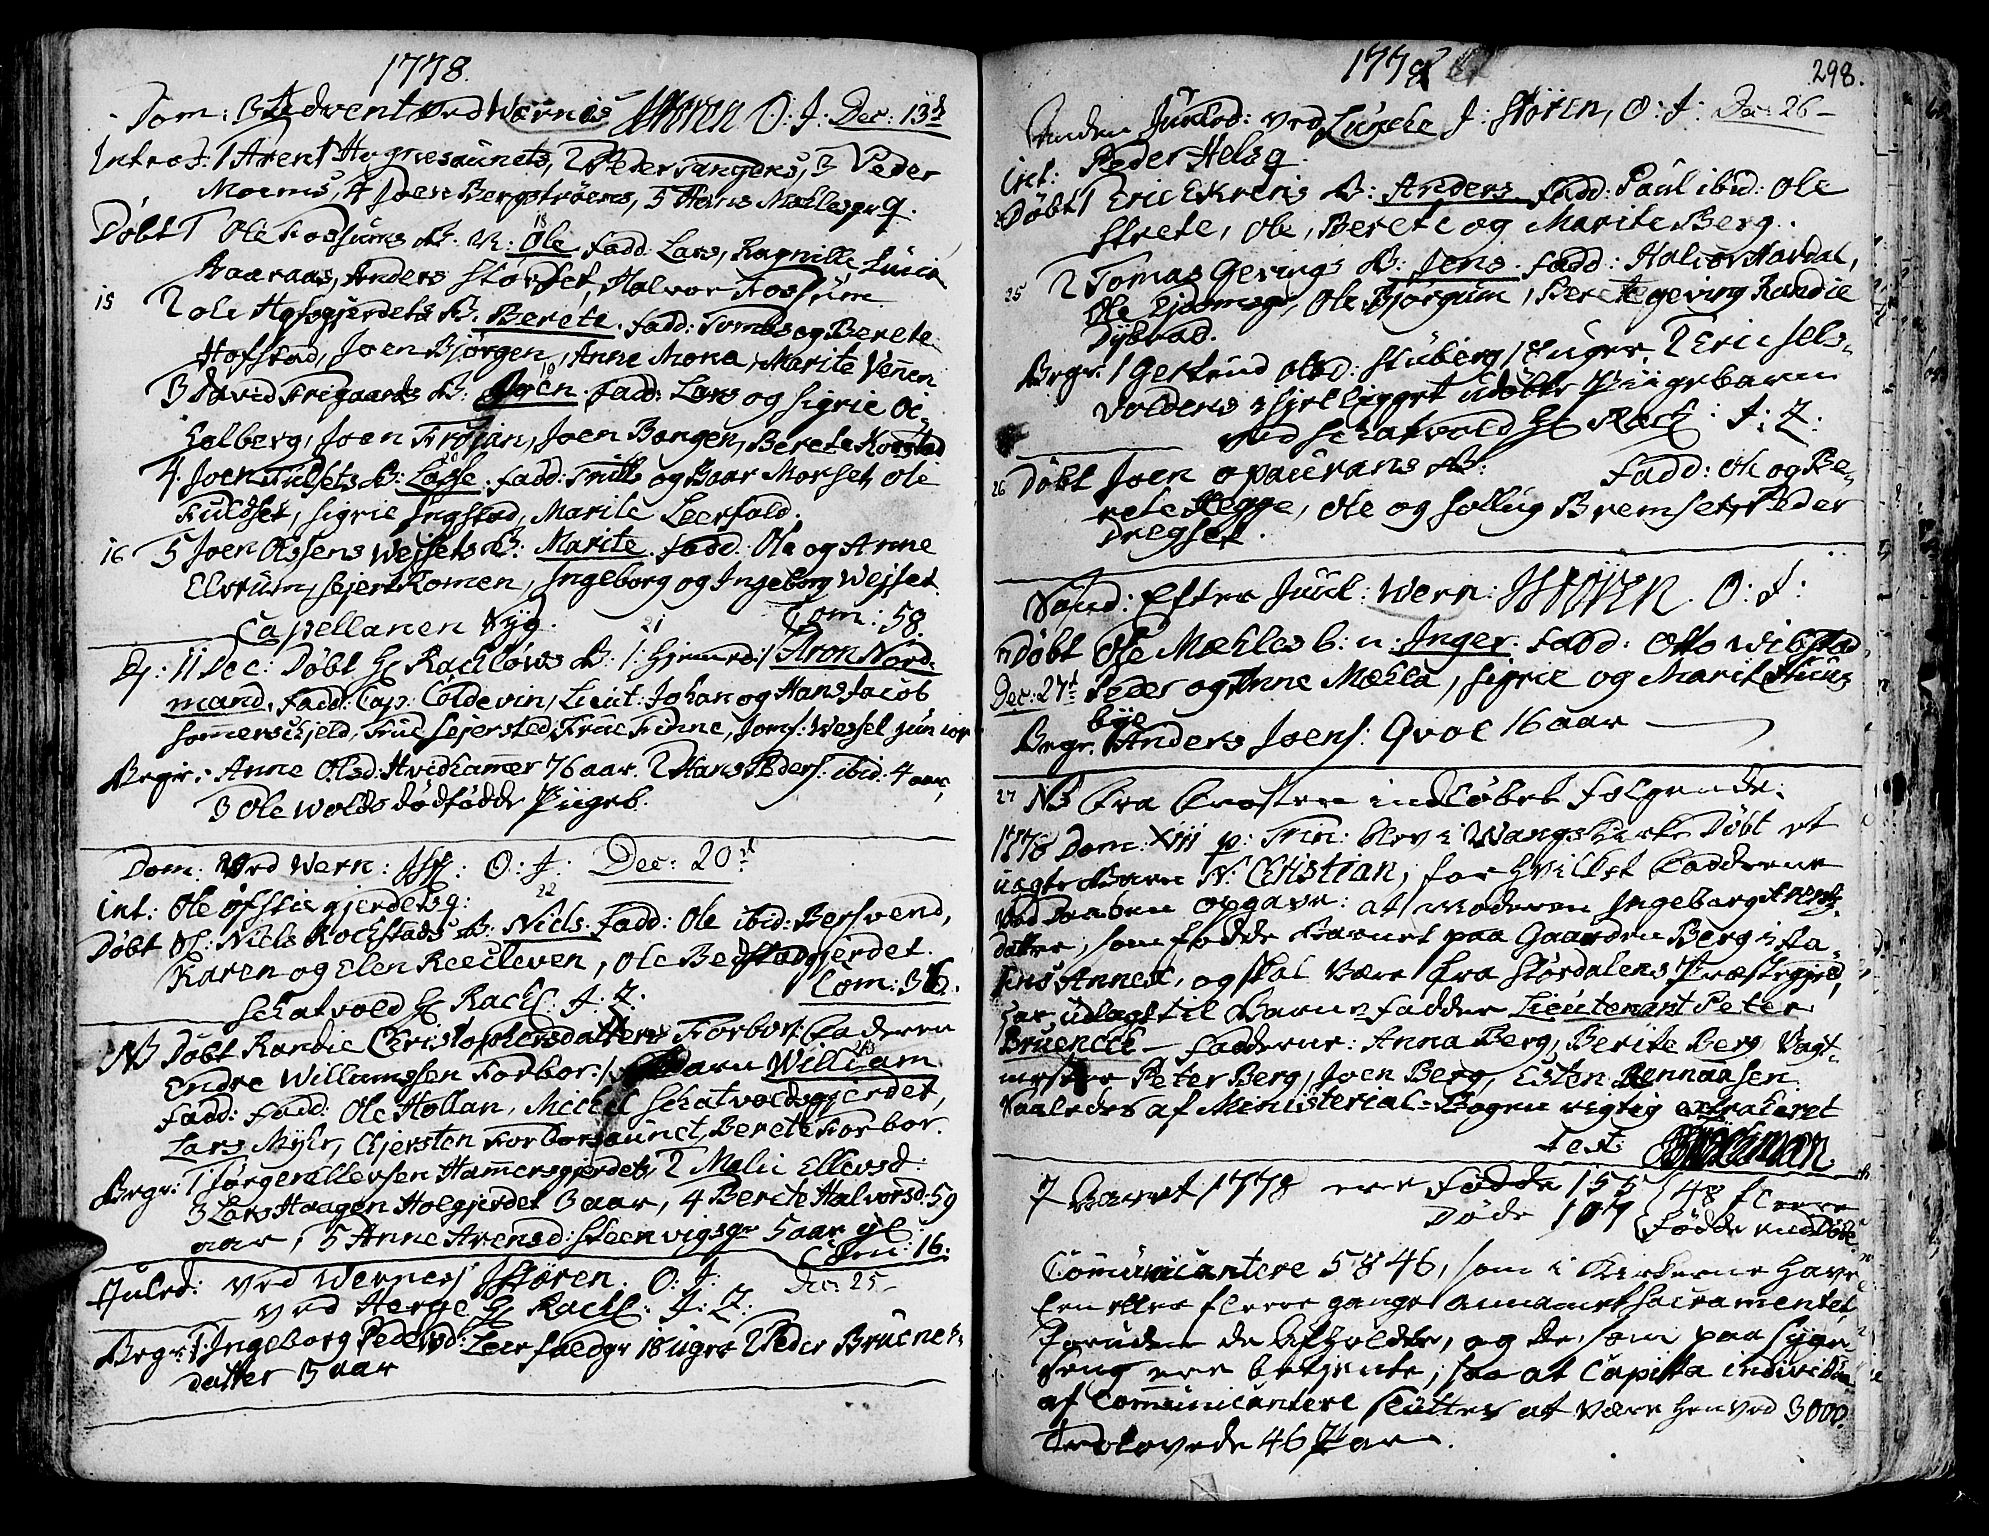 1778.
Dom: 3 Advent ved Wernes JStören O: J: Dec: 13d
Introd: 1 Arent Hognesaunets, 2 Peder Tangens, 3 Peder
Moems, 4 Joen Bergströems, 5 Hans Mæhlesg: q.
Döbt 1 Ole Fossums B. N: Ole fadd: Lars, Ragnille, Lucia
18
Aaaraas, Anders Storset, Halvor Fossum
15 2 Ole Hofsgjerdets B. Berete. fadd: Tomas og Berete
Hofstad, Joen Bjørgen, Anne Mona, Marite Vennen
3 David Frigaards B: Joen. fadd: Lars og Sigrie
19
Holberg, Joen Trøjan, Joen Bangen, Berete
4. Joen Fulsets B: Lasse. fadd: og Baar Morset, Ole
20
Fuldset, Sigrie Ingstad, Marite Leerfald.
16 5 Joen Olssens Wejsets B: Marite. fadd. Ole og Anne
Elvrum, Sejert Romen, Ingeborg og Ingeborg Wejset.
Capellanen Syg. Com: 58.
21
Dj: 11 Dec: Döbt Hr Rachlöws B. /: hjemed:/ Aron Nord-
mand. fadd: Cap: Coldevin, Lieut: Johan og Hans Jacob
Somerschjeld, Frue Sejersted, Frue Finne, Jomf: Wessel junior
Begr: Anne Olsd: Hvidkamer 76 aar. 2 Hans Peders: ibid. 4 aar,
3 Ole Wolds dødfødde Pigeb.
Dom: ved Wern: JSt: O: J. Dec: 20d
Int: Ole Öfstiegjerdets q:
22
Döbt Sl: Niels Rochstads B: Niels. fadd: Ole ibid: Bersvend,
Karen og Elen Reetleven, Ole Bedstadgjerdet.
Schatvold Hr Rachl. J: Z: Com: 36.
NB Döbt Randie Christophersdatters Forbor: faderen
Endre Willumssen Forbor:/ Barn William
23
fadd: fadd: Ole Hollan, Michel Schatvoldsgjerdet,
Lars Myhr, Chjersten Forborsaunet, Berete Forbor.
Begr: 1 Jørgen Ellevsen Hamersgjerdets, 2 Malie Ellevsd:
3 Lars Haagen Holgjerdet 3 aar, 4 Berite Halvorsd: 59
aar, 5 Anne Arensd: Steenvigsgr 5 aar gl
Com: 16.
Juled: ved Wernes JStören. O: J. Dec: 25
ved Hegge Hr Rachl: J: Z:
Begr: 1 Ingeborg Pedersd: Leerfaldgr 18 uger 2 Peder Bruene
datter 5 aar
1778
298.
Anden Juuled: ved Luncke J: Stören, O: J: Dec: 26
Int: Peder Hels q.
Döbt 1 Eric Ekrens B: Anders. fadd: Paul ibid: Ole
Strete, Ole, Berete og Marite Berg.
25 2 Tomas Gevings B: Jens. fadd: Halvor Havdal,
Ole, Ole Bjørgum, Berete Geving Randie
Dybvad.
Begr: 1 Gertrud Olsd: Stuberg 18 uger. 2 Eric Sels-
Voldens ihjelligget udöbte Piigebarn
ved Schatvold Hr Rachl: J: Z:
26 Döbt Joen Opaurans B: fadd: Ole og Be-
rete Hegge, Ole og Sollug Bremset, Peder
Dregset.
Sönd: Efter Juul: Wern: JStören. O: J:
Döbt Ole Mæhles b: n: Inger. fadd: Otto Wibstad
Dec: 27d Peder og Anne Mæhla, Sigrie og Marit Stuus
bye
Begr: Anders Joens: Qval 16 aar
27 NB Fra Frosten indløbet følgende:
1778 Dom: XIII p: Trin: blev i Wangs Kirke Döbt et
uægte Barn N: Christian, for hvilket Fadderne
ved Daaben opgave: at Moderen Ingeborg
datter, som fødde Barnet paa Gaarden Berg i
Annex, og skal være fra Størdalens Præstegjeld,
har udlagt til Barnefadder Lieutenant Peter
Bruencke – Fadderne: Anna Berg, Berite Berg, Vagt-
mester Peter Berg, Joen Berg, Esten Rennaasen.
Saaledes af Ministerial-Bogen rigtig extraheret
Test:
I Aaret 1778 ere Fødde 155 48 flere
Døde 107 Fødde end Døde.
Communicantere 5846, som i Kirkerne have
een eller flere gange annammet Sacramentet,
foruden de Afholdte, og de, som paa Syge-
seng ere betjente; saa at Capita individua
af Communicantere skutter at være henved 3000.
Trolovede 46 Par.